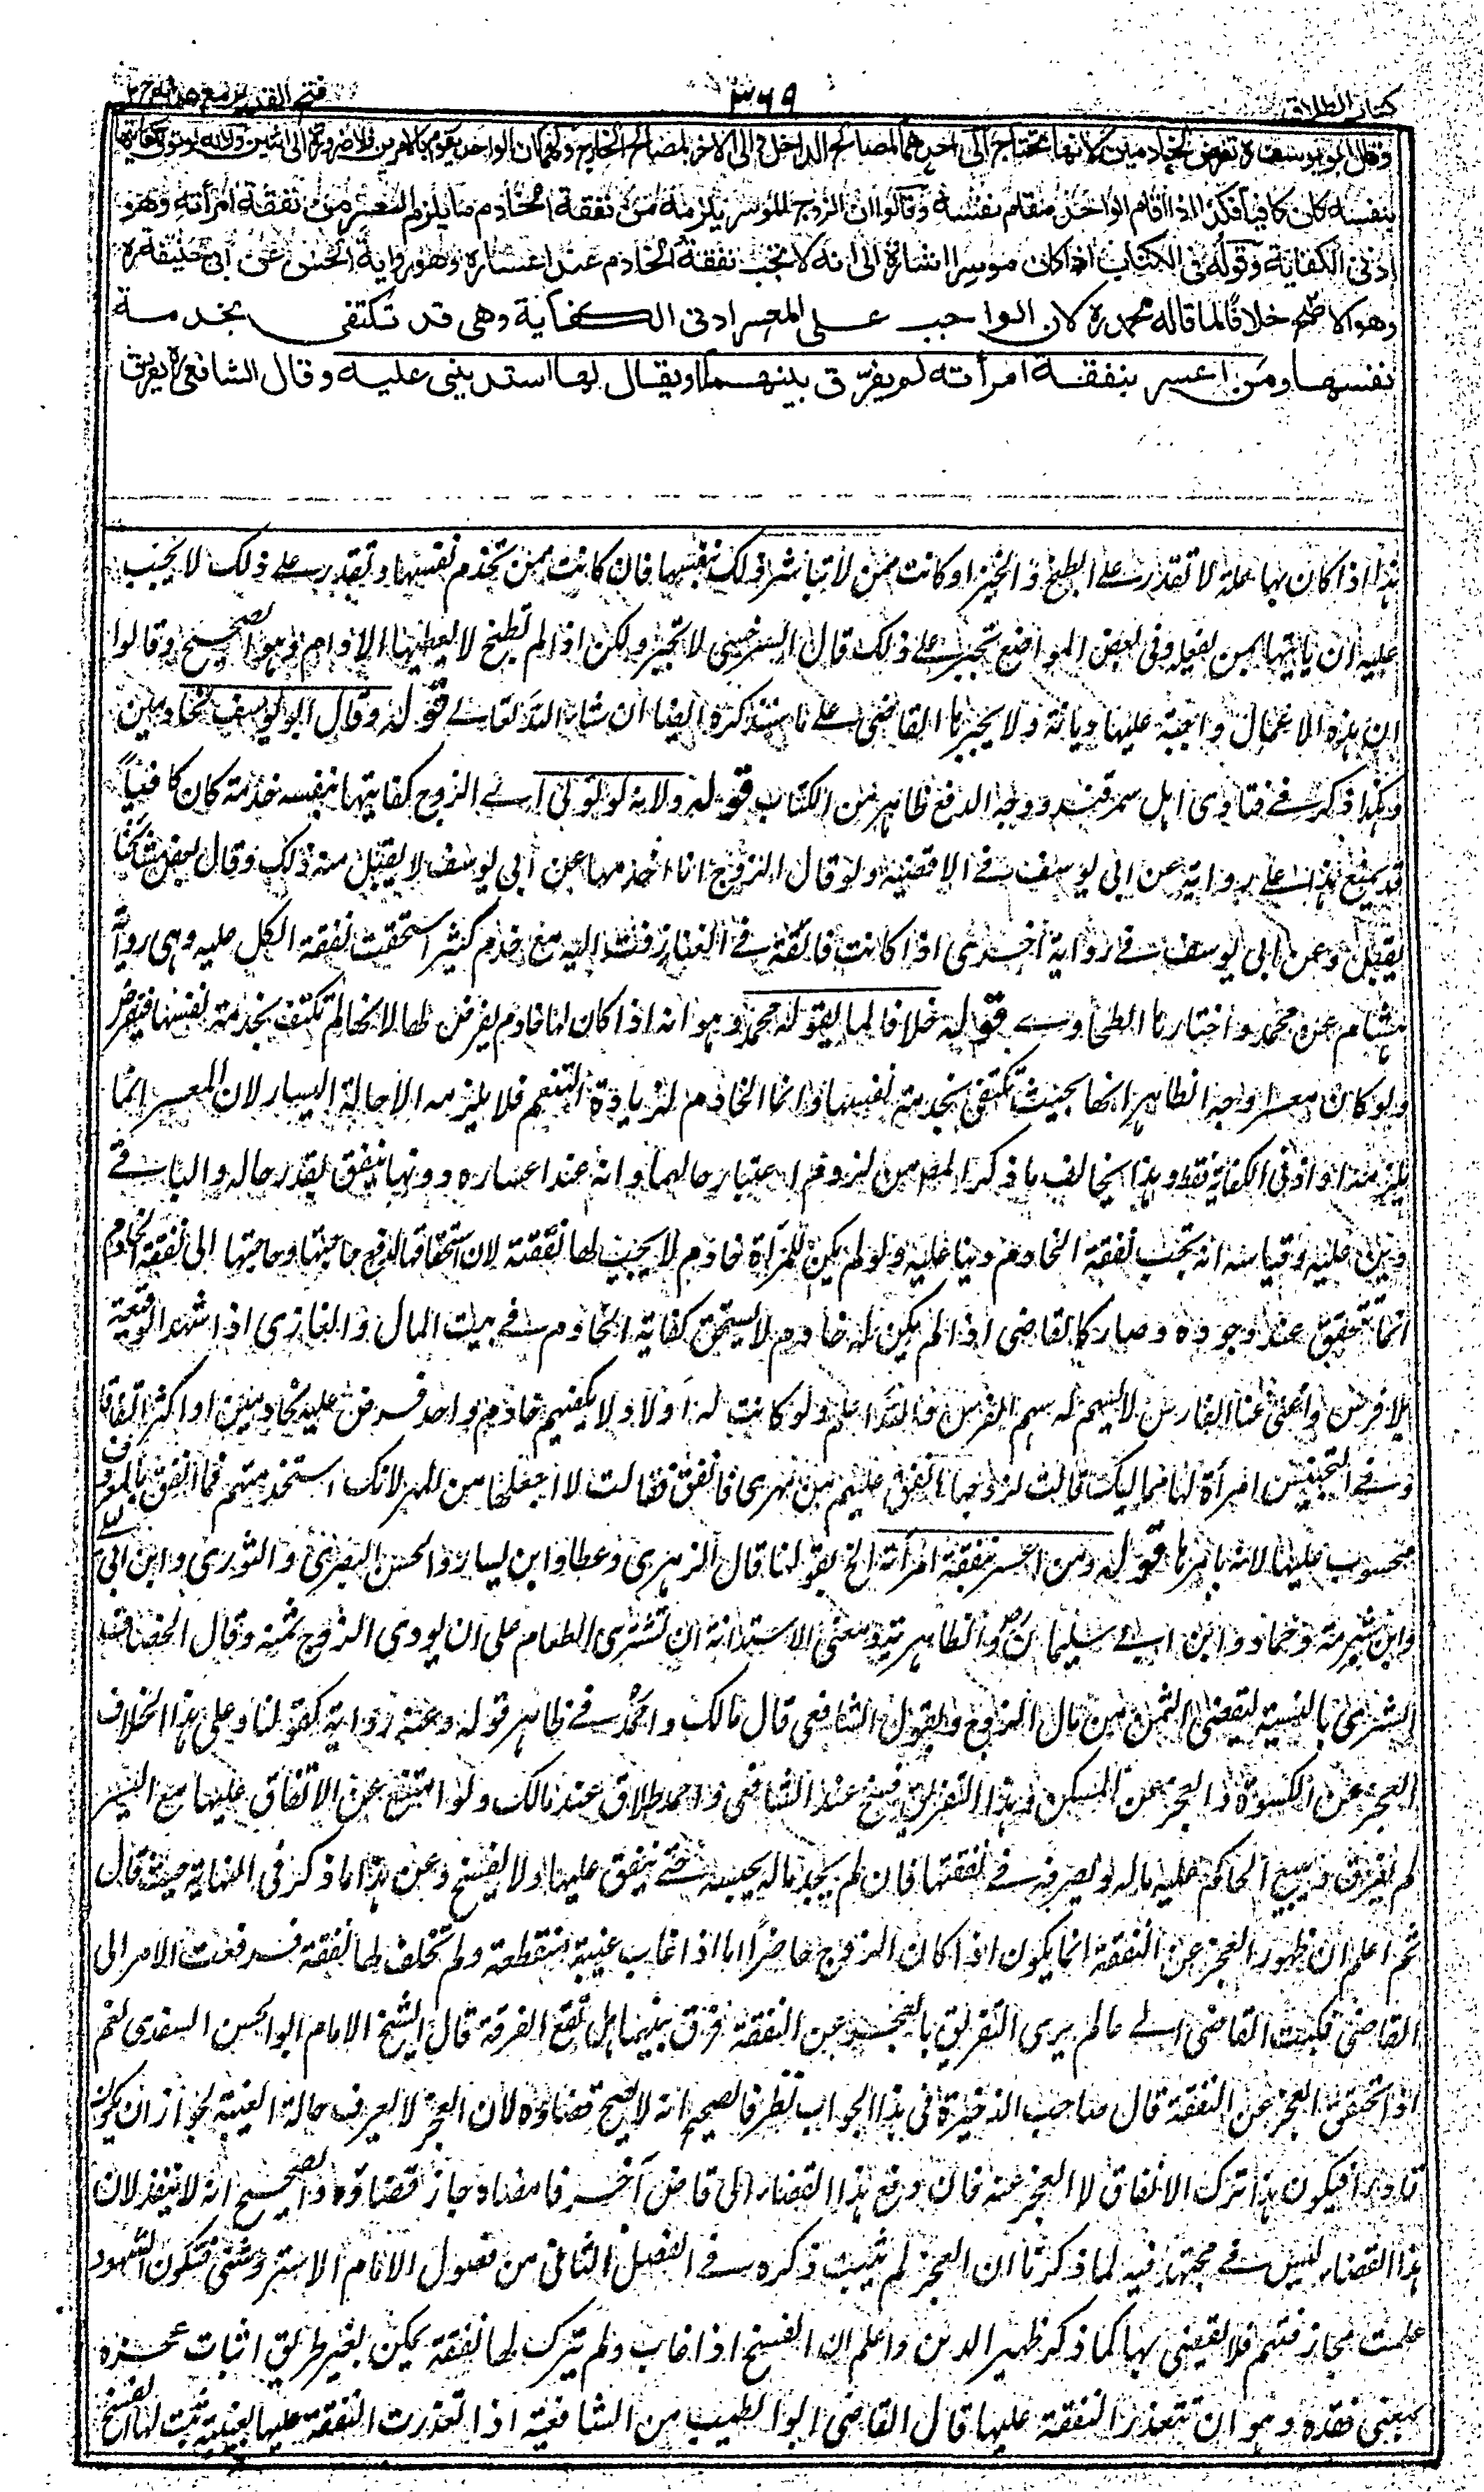 كتاب الطلاق
۳۶۹
فتح القدير مع هدايه ج ۲
وقال ابو يوسف ره تفرض لخادمين لانها تحتاج الى احدهما لمصالح الداخل والى الاخر لمصالح الخارج ولهما ان الواحد يقوم بالامرين فلا ضرورة الى اثنين ولانه لو تولى كفايتها
بنفسه كان كافيا فكذا اذا اقام الواحد مقام نفسه وقالوا ان الزوج الموسر يلزمه من نفقة الخادم ما يلزم المعسر من نفقة امرأته وهو
ادنى الكفاية وقوله فى الكتاب اذا كان موسرا اشارة الى انه لا تجب نفقة الخادم عند اعساره وهو رواية الحسن عن ابى حنيفة ره
وهو الاصح خلافا لما قاله محمد ره لان الواجب على المعسر ادنى الكفاية وهى قد تكتفى بخدمة
نفسها ومن اعسر بنفقة امرأته لم يفرق بينهما ويقال لها استدينى عليه وقال الشافعى ره يفرق
هذا اذا كان بها علة لا تقدر على الطبخ والخبز او كانت ممن لا تباشر ذلك بنفسها فان كانت ممن تخدم نفسها وتقدر على ذلك لا يجب
عليه ان ياتيها بمن يفعله وفى بعض المواضع تجبر على ذلك قال السرخسى لا تجبر ولكن اذا لم تطبخ لا يعطيها الادام وهو الصحيح وقالوا
ان هذه الاعمال واجبة عليها ديانة ولا يجبرها القاضى على ما سنذكره ايضا ان شاء الله تعالى قوله وقال ابو يوسف لخادمين
وهكذا ذكر فى فتاوى اهل سمرقند ووجه الدفع ظاهر من الكتاب قوله ولانه لو تولى اى الزوج كفايتها بنفسه خدمة كان كافيا
قد يمنع هذا على رواية عن ابى يوسف فى الاقضية ولو قال الزوج انا اخدمها عن ابى يوسف لا يقبل منه ذلك وقال بعض مشائخنا
يقبل وعن ابى يوسف فى رواية اخرى اذا كانت فائقة فى الغنا زفت اليه مع خدم كثير استحقت نفقة الكل عليه وهى رواية
هشام عن محمد واختارها الطحاوى قوله خلافا لما يقوله محمد وهو انه اذا كان لها خادم يفرض لها لانها لم تكتف بخدمة نفسها فيفرض
ولو كان معسرا وجه الظاهر انها بحيث تكتفى بخدمة نفسها وانما الخادم لزيادة التنعم فلا يلزمه الا حالة اليسار لان المعسر انما
يلزمه ادنى الكفاية فقط وهذا يخالف ما ذكر المص من لزوم اعتبار حالهما وانه عند اعساره دونها ينفق بقدر حاله والباقى
دين عليه وقياسه انه تجب نفقة الخادم دينا عليه ولو لم يكن للمرأة خادم لا يجب لها نفقته لان استحقاقها لدفع حاجتها وحاجتها الى نفقة الخادم
انما تتحقق عند وجوده وصار كالقاضى اذا لم يكن له خادم لا يستحق كفاية الخادم فى بيت المال والغازى اذا شهد الوقعة
بلا فرس واغنى غناء الفارس لا يسهم له سهم الفرس والله اعلم ولو كانت له اولاد لا يكفيهم خادم واحد فرض عليه لخادمين او اكثر اتفاقا
وفى التجنيس امرأة لها مماليك قالت لزوجها انفق عليهم من مهرى فانفق فقالت لا اجعلها من المهر لانك استخدمتهم فما انفق بالمعروف
محسوب عليها لانه بامرها قوله ومن اعسر بنفقة امرأته الخ بقولنا قال الزهرى وعطا وابن يسار والحسن البصرى والثورى وابن ابى ليلى
وابن شبرمة وحماد وابن ابى سليمان والظاهرية ومعنى الاستدانة ان تشترى الطعام على ان يودى الزوج ثمنه وقال الخصاف
الشرى بالنسية ليقضى الثمن من مال الزوج وبقول الشافعى قال مالك واحمد فى ظاهر قوله وعنه رواية كقولنا وعلى هذا الخلاف
العجز عن الكسوة والعجز عن المسكن وهذا التفريق فسخ عند الشافعى واحمد طلاق عند مالك ولو امتنع عن الانفاق عليها مع اليسر
لم يفرق ويبيع الحاكم عليه ماله ويصرفه فى نفقتها فان لم يجد ماله يحبسه حتى ينفق عليها ولا يفسخ وعن هذا ما ذكر فى النهاية حيث قال
ثم اعلم ان ظهور العجز عن النفقة انما يكون اذا كان الزوج حاضرا اما اذا غاب غيبة منقطعة ولم تخلف لها نفقة فرفعت الامر الى
القاضى فكتب القاضى الى عالم يرى التفريق بالعجز عن النفقة ففرق بينهما هل تقع الفرقة قال الشيخ الامام ابو الحسن السغدى نعم
اذا تحقق العجز عن النفقة قال صاحب الذخيرة فى هذا الجواب نظر فالصحيح انه لا يصح قضاؤه لان العجز لا يعرف حالة الغيبة لجواز ان يكون
قادرا فيكون هذا ترك الانفاق لا العجز عنه فان رفع هذا القضاء الى قاض آخر فامضاه جاز قضاؤه والصحيح انه لا ينفذ لان
هذا القضاء ليس فى مجتهد فيه لما ذكرنا ان العجز لم يثبت ذكره فى الفصل الثانى من فصول الامام الاستروشنى فتكون الشهود
علمت مجازفتهم فلا يقضى بها كما ذكر ظهير الدين واعلم ان الفسخ اذا غاب ولم يترك لها نفقة يمكن بغير طريق اثبات عجزه
بمعنى فقده وهو ان تتعذر النفقة عليها قال القاضى ابو الطيب من الشافعية اذا تعذرت النفقة عليها بغيبته ثبت لها الفسخ